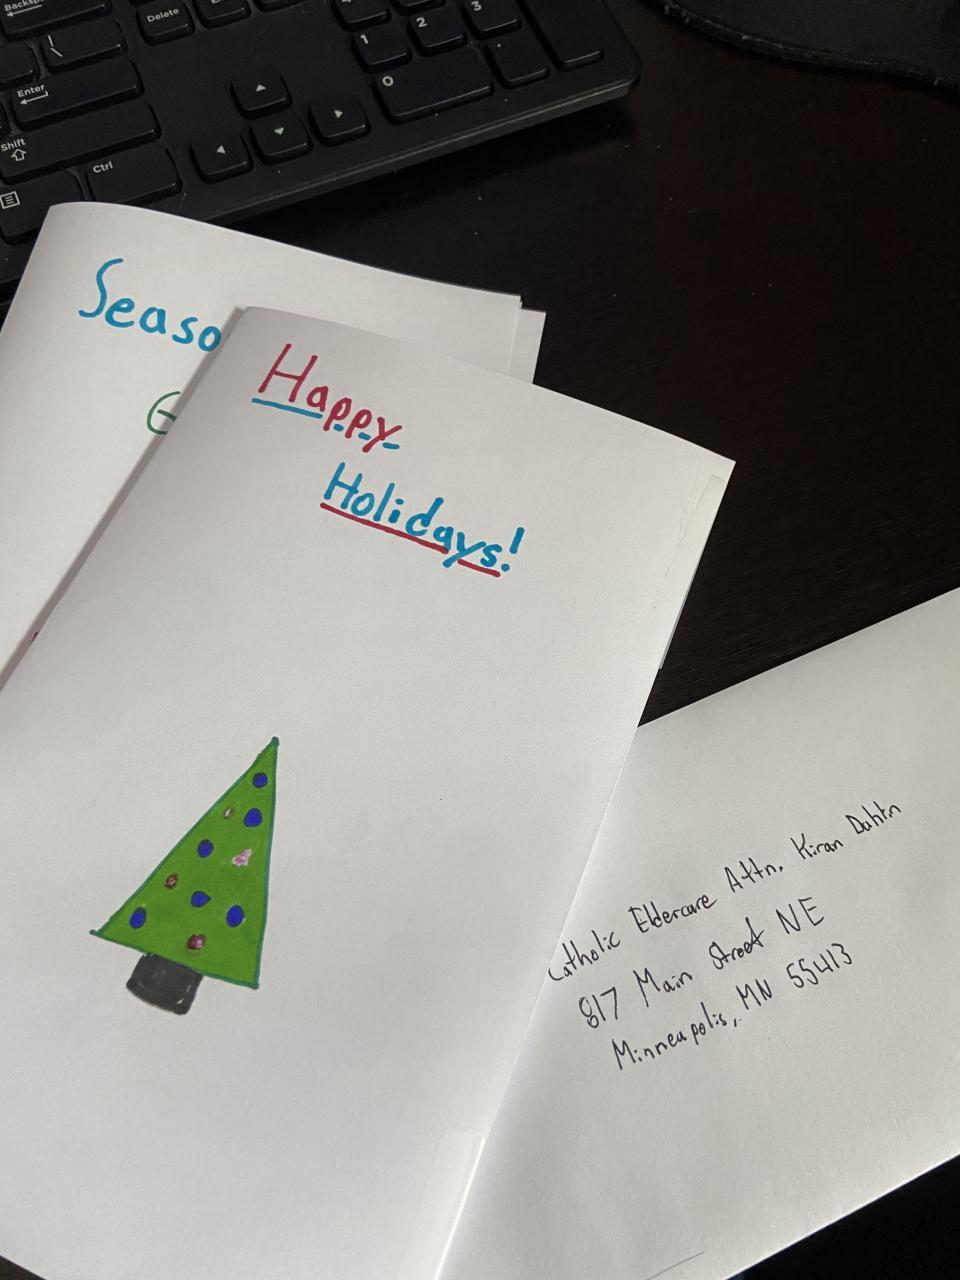 Backsp
Delete
En
\
1
2
3
Enter
0
.
Shift
Ctrl
Seaso
G
Happy
Holidays!
Catholic Eldercare Attn. Kiran Dahlin
817 Main Street NE
Minneapolis, MN 55413